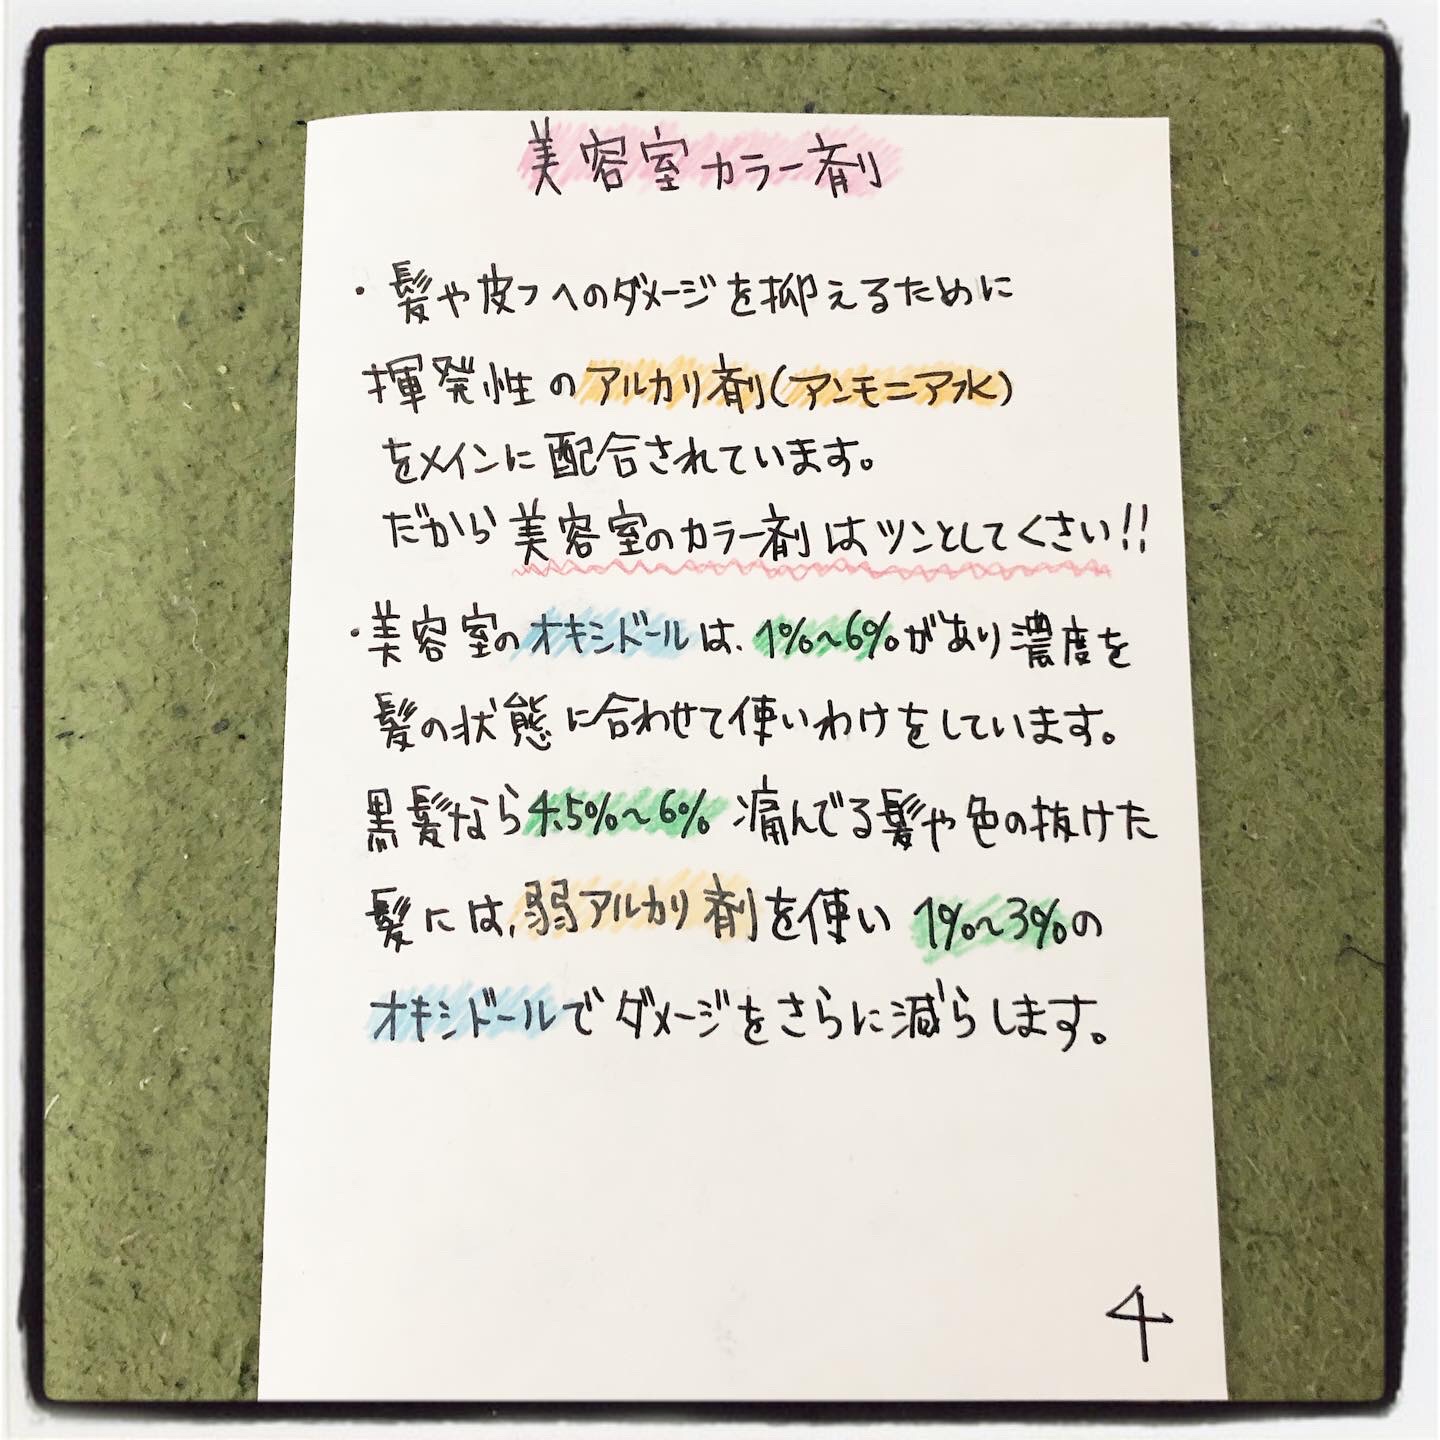 美容室カラー剤
・髪や皮フへのダメージを抑えるために
揮発性のアルカリ剤(アンモニア水)
をメインに配合されています。
だから美容室のカラー剤はツンとしてくさい!!
・美容室のオキシドールは、1%~6%があり濃度を
髪の状態に合わせて使いわけをしています。
黒髪なら4.5%~6% 痛んでる髪や色の抜けた
髪には、弱アルカリ剤を使い 1%~3%の
オキシドールでダメージをさらに減らします。
4